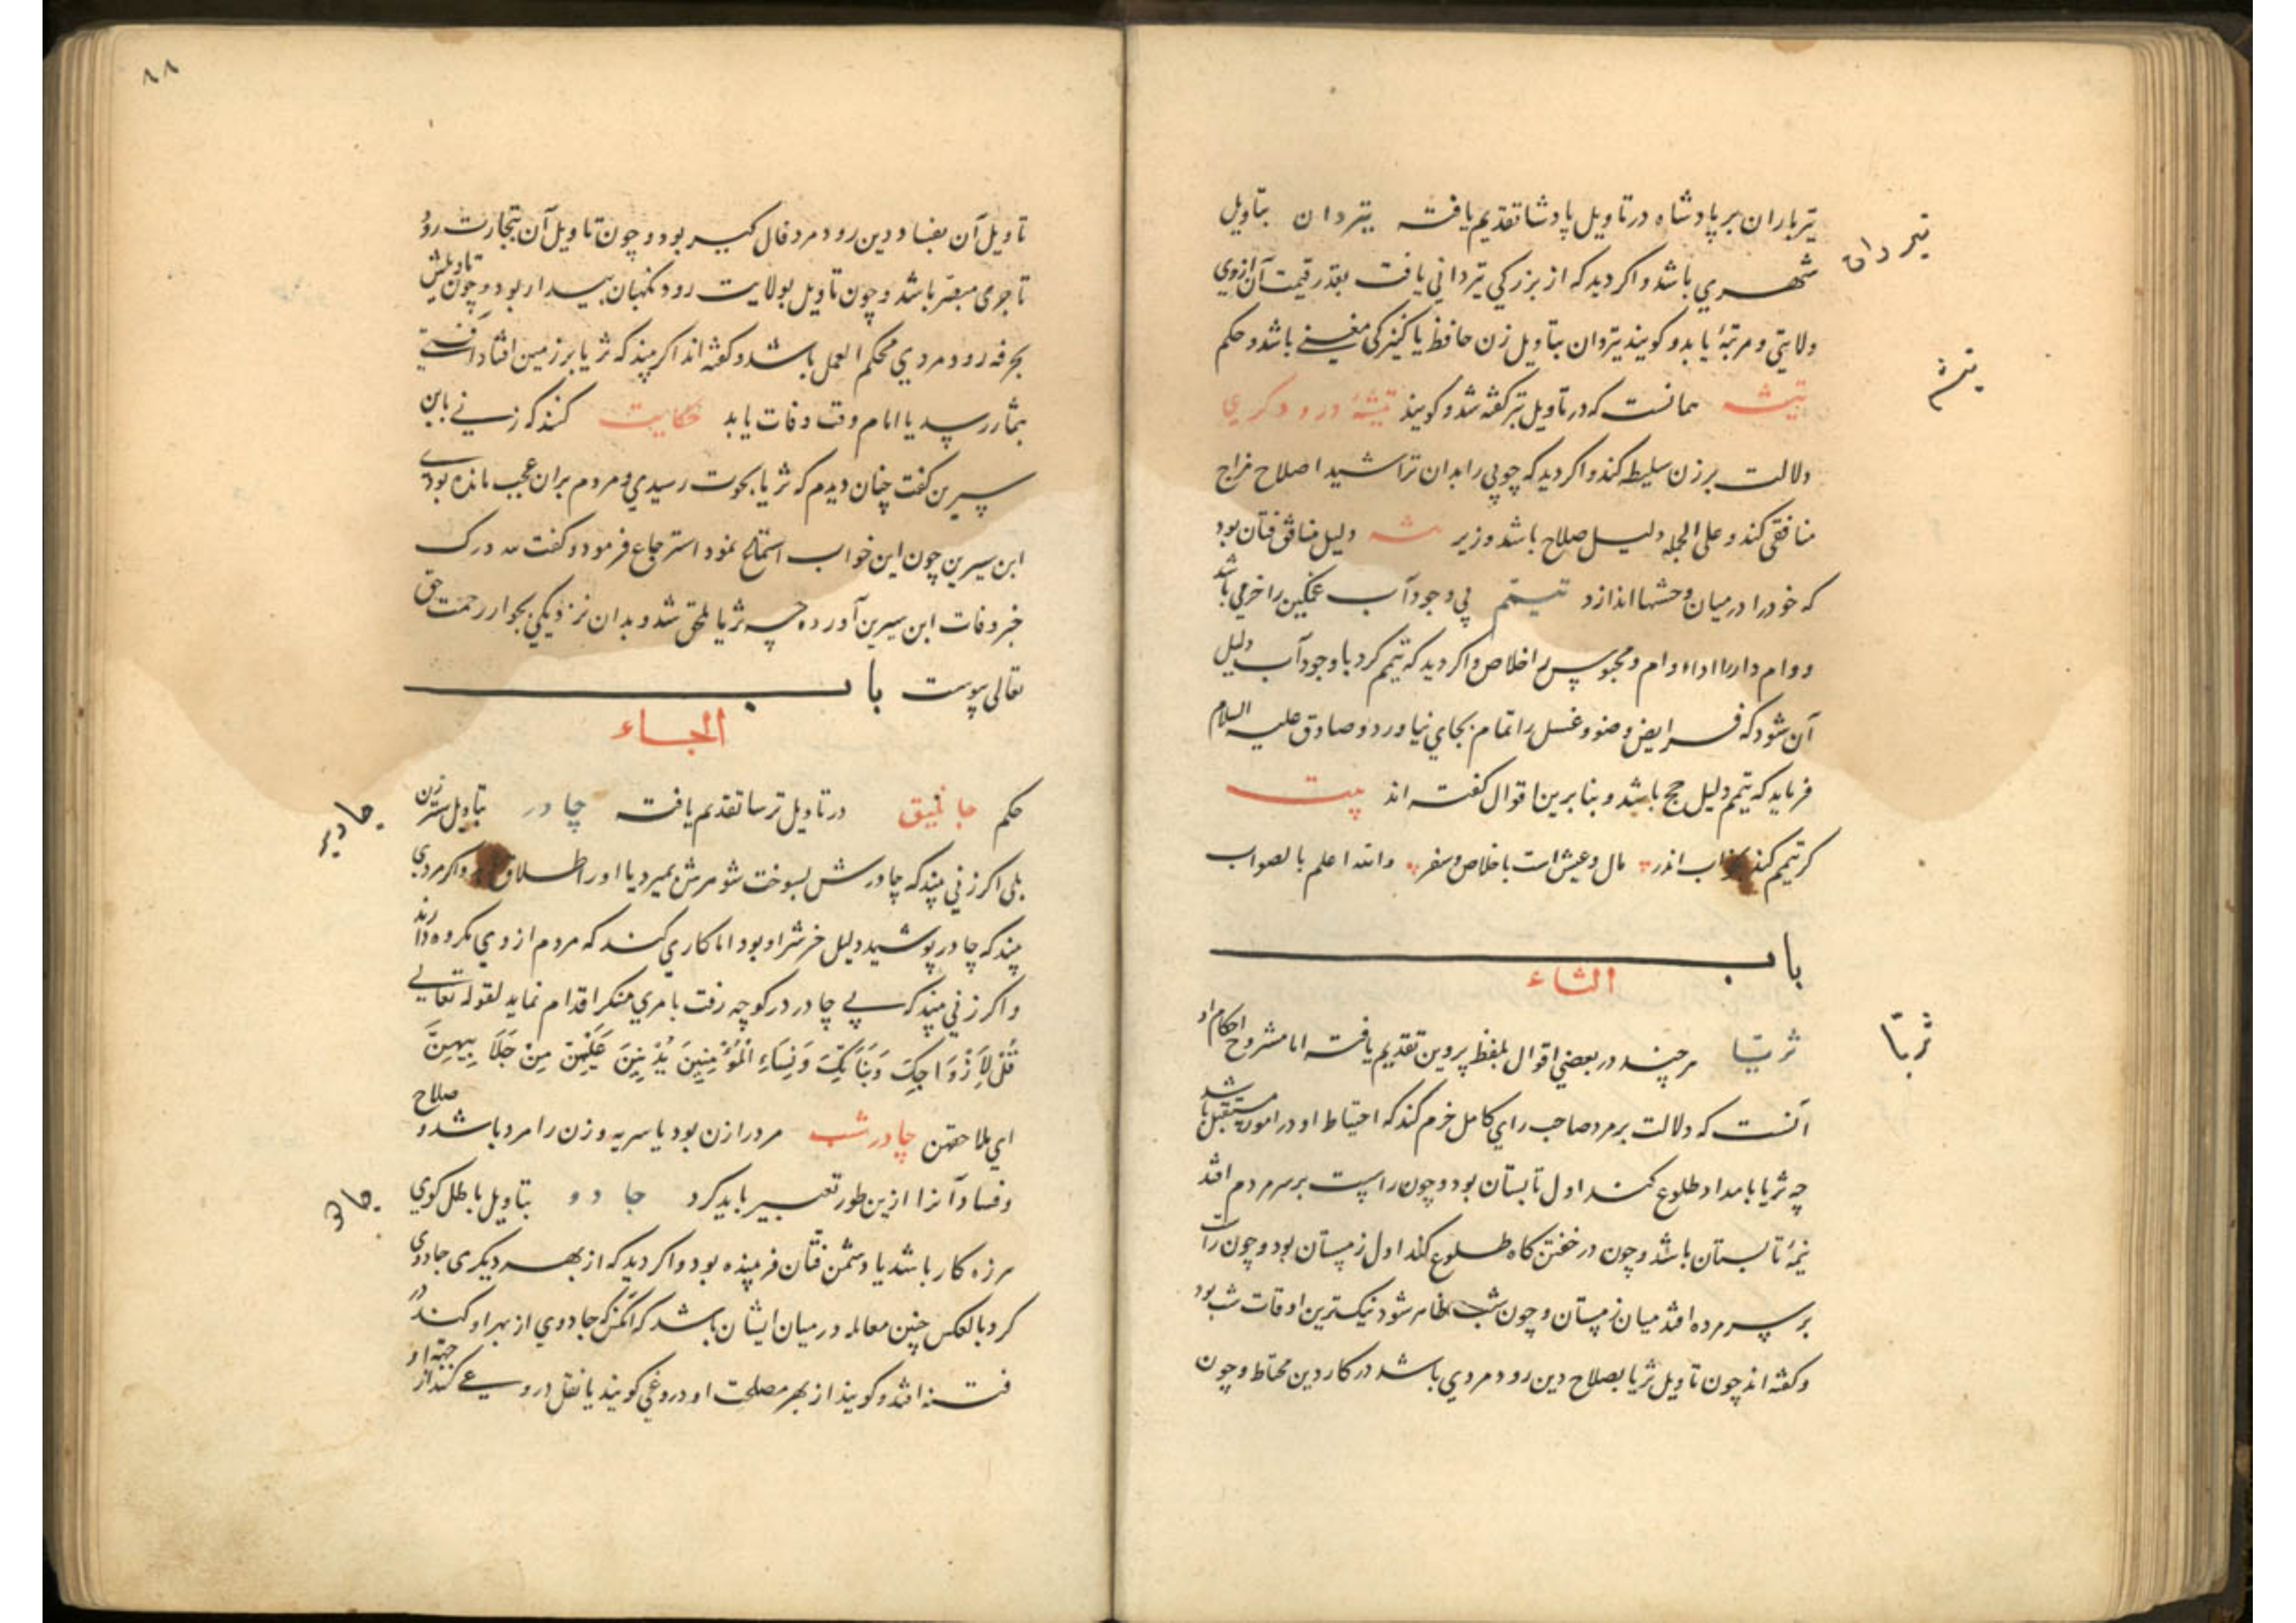 تیر باران بر پادشاه در تاویل پادشا تقدیم یافت تیردان بتاویل
تیردان
شهری باشد و اکر دید که از بزرکی تیردانی یافت بقدر قیمت آن ازوی
ولایتی و مرتبهٔ یابد و کویند تیردان بتاویل زن حافظ یا کنیزکی مغنیه باشد و حکم
تیشه
تیشه همانست که در تاویل تبر کفته شد و کویند تیشهٔ درودکری
دلالت بر زن سلیطه کند و اکر دید که چوبی را بدان تراشید اصلاح مزاج
منافقی کند و علی الجمله دلیل صلاح باشد وزیر دلیل منافق فتان بود
که خود را در میان وحشها اندازد تیمم بی وجود آب غمکین را خرمی باشد
و وام دار را اداء وام و محبوس را خلاص و اکر دید که تیمم کرد با وجود آب دلیل
آن شود که فرایض وضو و غسل را تمام بجای نیاورد و صادق علیه السلام
فرماید که تیمم دلیل حج باشد و بنابرین اقوال کفته اند بیت
کر تیمم کند بخواب اندر مال و عیش است با خلاص و سفر والله اعلم بالصواب
باب
الثاء
ثریا
ثریا هر چند در بعضی اقوال بلفظ پروین تقدیم یافت اما مشروح احکام او
آنست که دلالت بر مرد صاحب رای کامل حزم کند که احتیاط او در امور مستقبل باشد
چه ثریا بامداد طلوع کند اول تابستان بود و چون راست بر سر مردم افتد
نیمهٔ تابستان باشد و چون در خفتن کاه طلوع کند اول زمستان بود و چون راست
بر سر مرده افتد میان زمستان و چون شب ظاهر شود نیکترین اوقات شب بود
و کفته اند چون تاویل ثریا بصلاح دین رود مردی باشد در کار دین محتاط و چون
۸۸
تاویل آن بفساد دین رود مرد فال کیر بود و چون تاویل آن بتجارت رود
تاجری مبصر باشد و چون تاویل بولایت رود نکهبان بیدار بود و چون تاویلش
بحرفه رود مردی محکم العمل باشد و کفته اند اکر بیند که ثریا بر زمین افتاد آفتی
بثمار رسد یا امام وقت وفات یابد حکایت کنند که زنی بابن
سیرین کفت چنان دیدم که ثریا بحوت رسیدی و مردم بران عجب مانده بودی
ابن سیرین چون این خواب استماع نمود استرجاع فرمود و کفت درک
خبر وفات ابن سیرین آورده چه ثریا ملحق شد و بدان نزدیکی بجوار رحمت حق
تعالی پیوست باب
الجاء
حکم جاثلیق در تاویل ترسا تقدیم یافت چادر بتاویل ستر زن
چادر
بلی اکر زنی بیند که چادرش بسوخت شوهرش بمیرد یا او را طلاق و اکر مردی
بیند که چادر پوشید دلیل خیر شر او بود اما کاری کند که مردم از وی مکروه دارند
و اکر زنی بیند که بی چادر در کوچه رفت بامری منکر اقدام نماید لقوله تعالی
قُلْ لِأَزْوَاجِكَ وَبَنَاتِكَ وَنِسَاءِ الْمُؤْمِنِينَ يُدْنِينَ عَلَيْهِنَّ مِنْ جَلَابِيبِهِنَّ
ای بملاحفهن چادر شب مرد را زن بود یا سریه و زن را مرد باشد و صلاح
و فساد آنرا ازین طور تعبیر باید کرد جادو بتاویل باطل کوی
جادو
هرزه کار باشد یا دشمن فتان فریبنده بود و اکر دید که از بهر دیکری جادوی
کرد بالعکس چنین معامله در میان ایشان باشد که آنکس که جادوی از بهر او کند در
فتنه افتد و کویند از بهر مصلحت او دروغی کویند یا نقل دروغی کند از جهة او